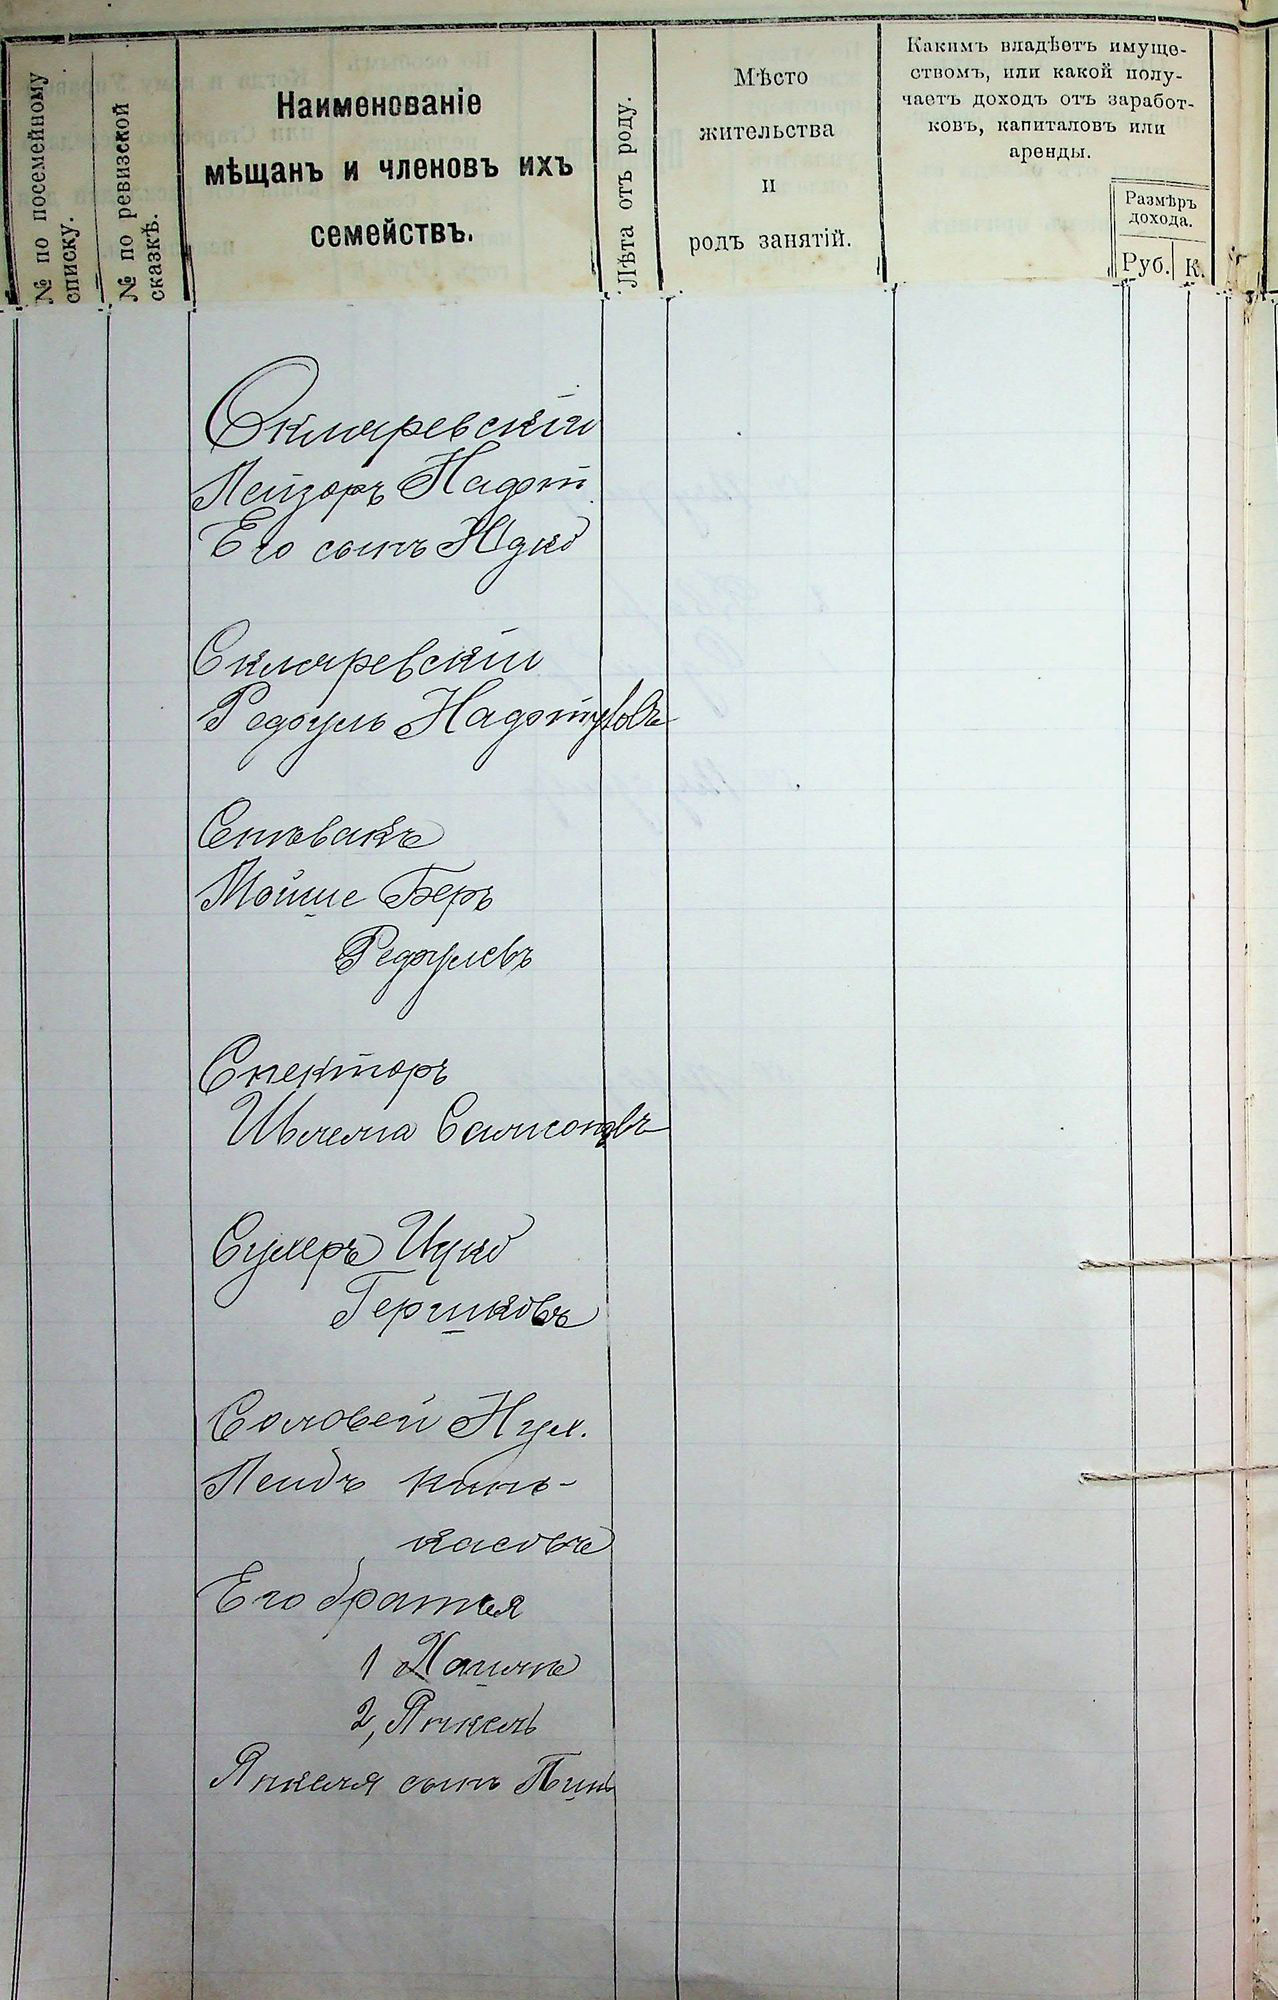 № по посемейному
списку.
№ по ревизской
сказкѣ.
Наименованіе
мѣщанъ и членовъ ихъ
семействъ.
Лѣта отъ роду.
Мѣсто
жительства
и
родъ занятій.
Какимъ владѣетъ имуще-
ствомъ, или какой полу-
чаетъ доходъ отъ заработ-
ковъ, капиталовъ или
аренды.
Размѣръ
дохода.
Руб.
К.
Скляревскій
Лейзоръ Нафт
Его сынъ Ицко
Скляревскій
Рефуль Нафтуловъ
Спѣвакъ
Мойше Беръ
Рефулевъ
Спекторъ
Шлема Самсоновъ
Сухеръ Ицко
Гершковъ
Соловей Нух.
Лейбъ Пинь-
касовъ
Его братья
1 Хаимъ
2, Янкель
Янкеля сынъ